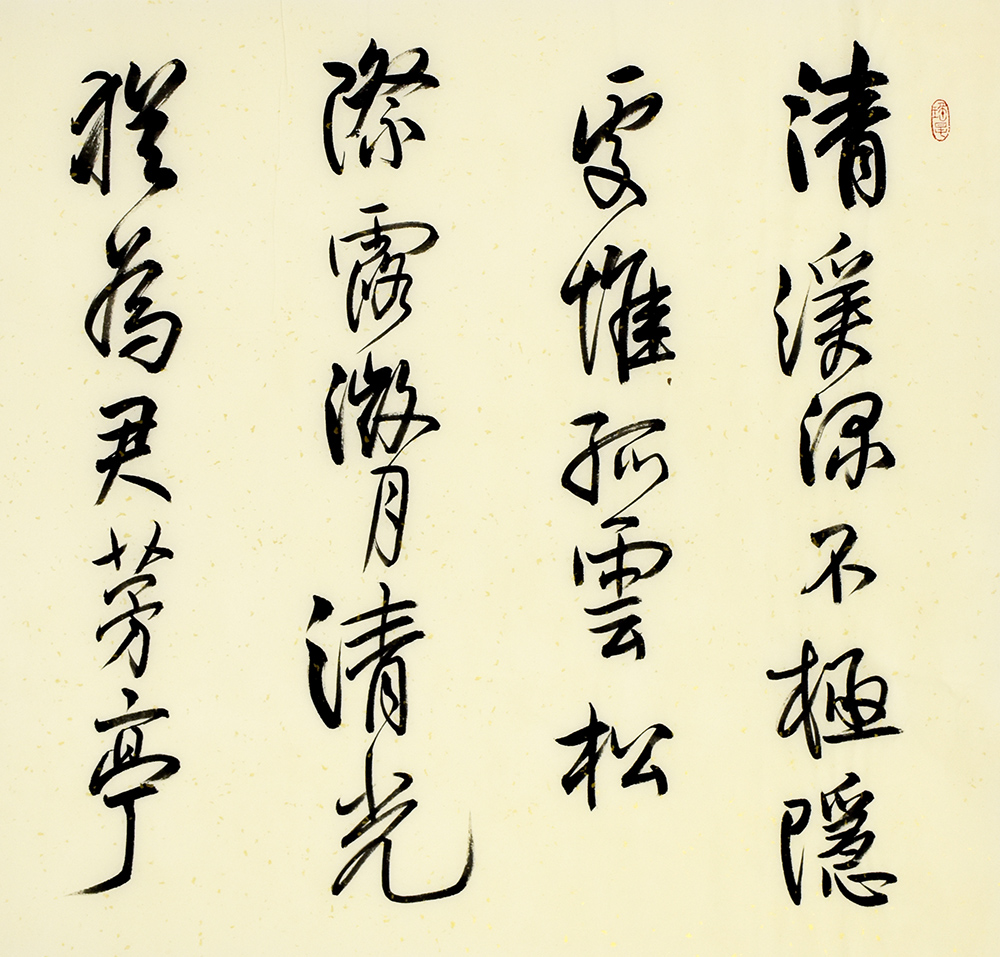 清溪深不極隱
處惟孤雲松
際露微月清光
猶為君芳亭